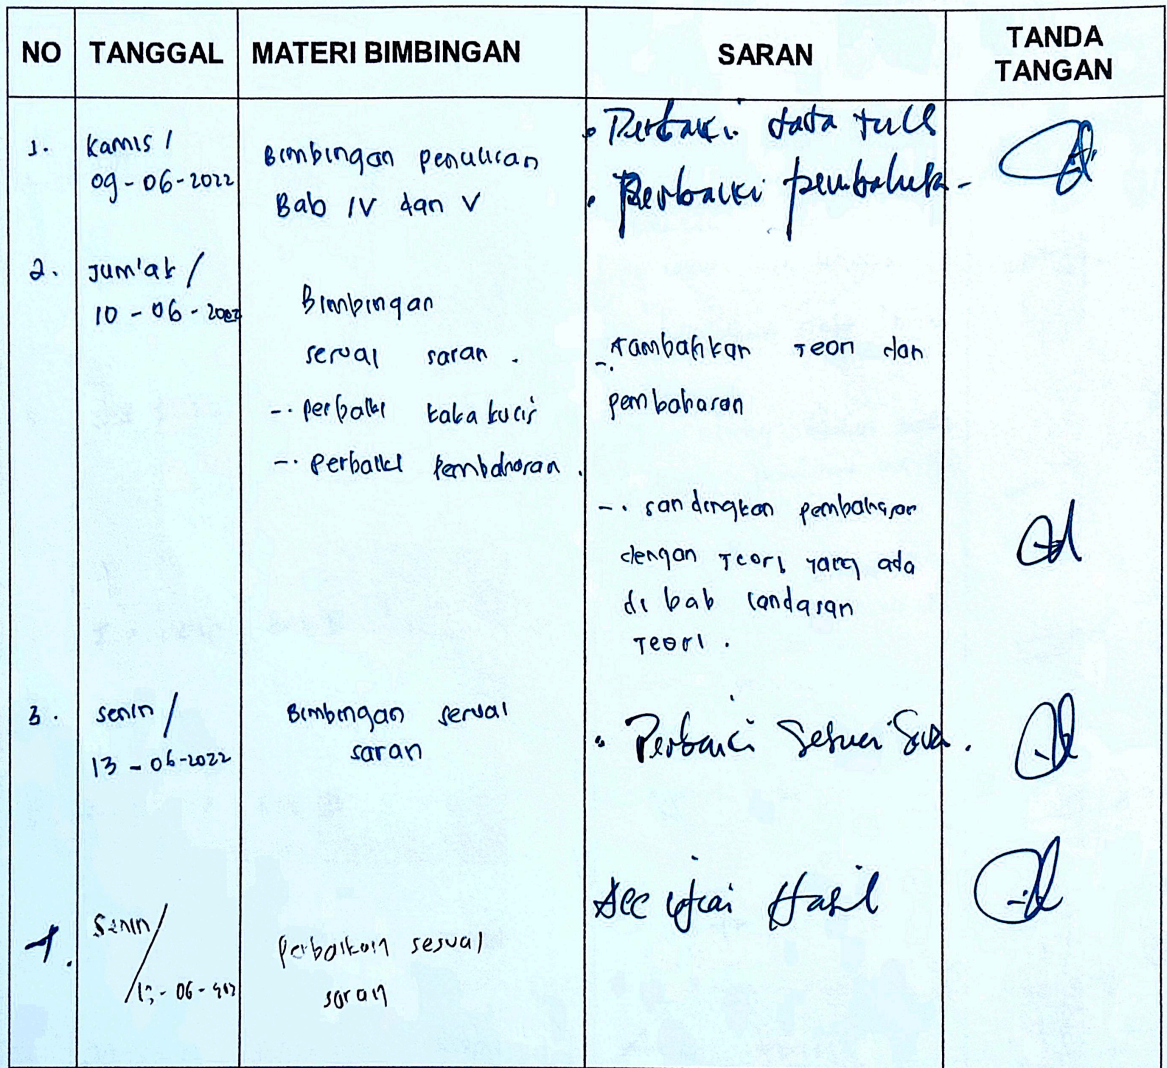 NO TANGGAL MATERI BIMBINGAN SARAN TANDA TANGAN
1. Kamis / 09-06-2022
Bimbingan penulisan
Bab IV dan V
• Perbaiki tata tulis
• Perbaiki pembahasan
2. Jum'at / 10-06-2022
Bimbingan
sesuai saran.
-. perbaiki tata tulis
-. Perbaiki Pembahasan.
-. Tambahkan Teori dan
pembahasan
-. sandingkan pembahasan
dengan Teori yang ada
di bab landasan
Teori.
3. Senin / 13-06-2022
Bimbingan sesuai
saran
• Perbaiki Sesuai Saran.
Senin / 13-06-
Perbaikan sesuai
saran
Acc Ujian Hasil